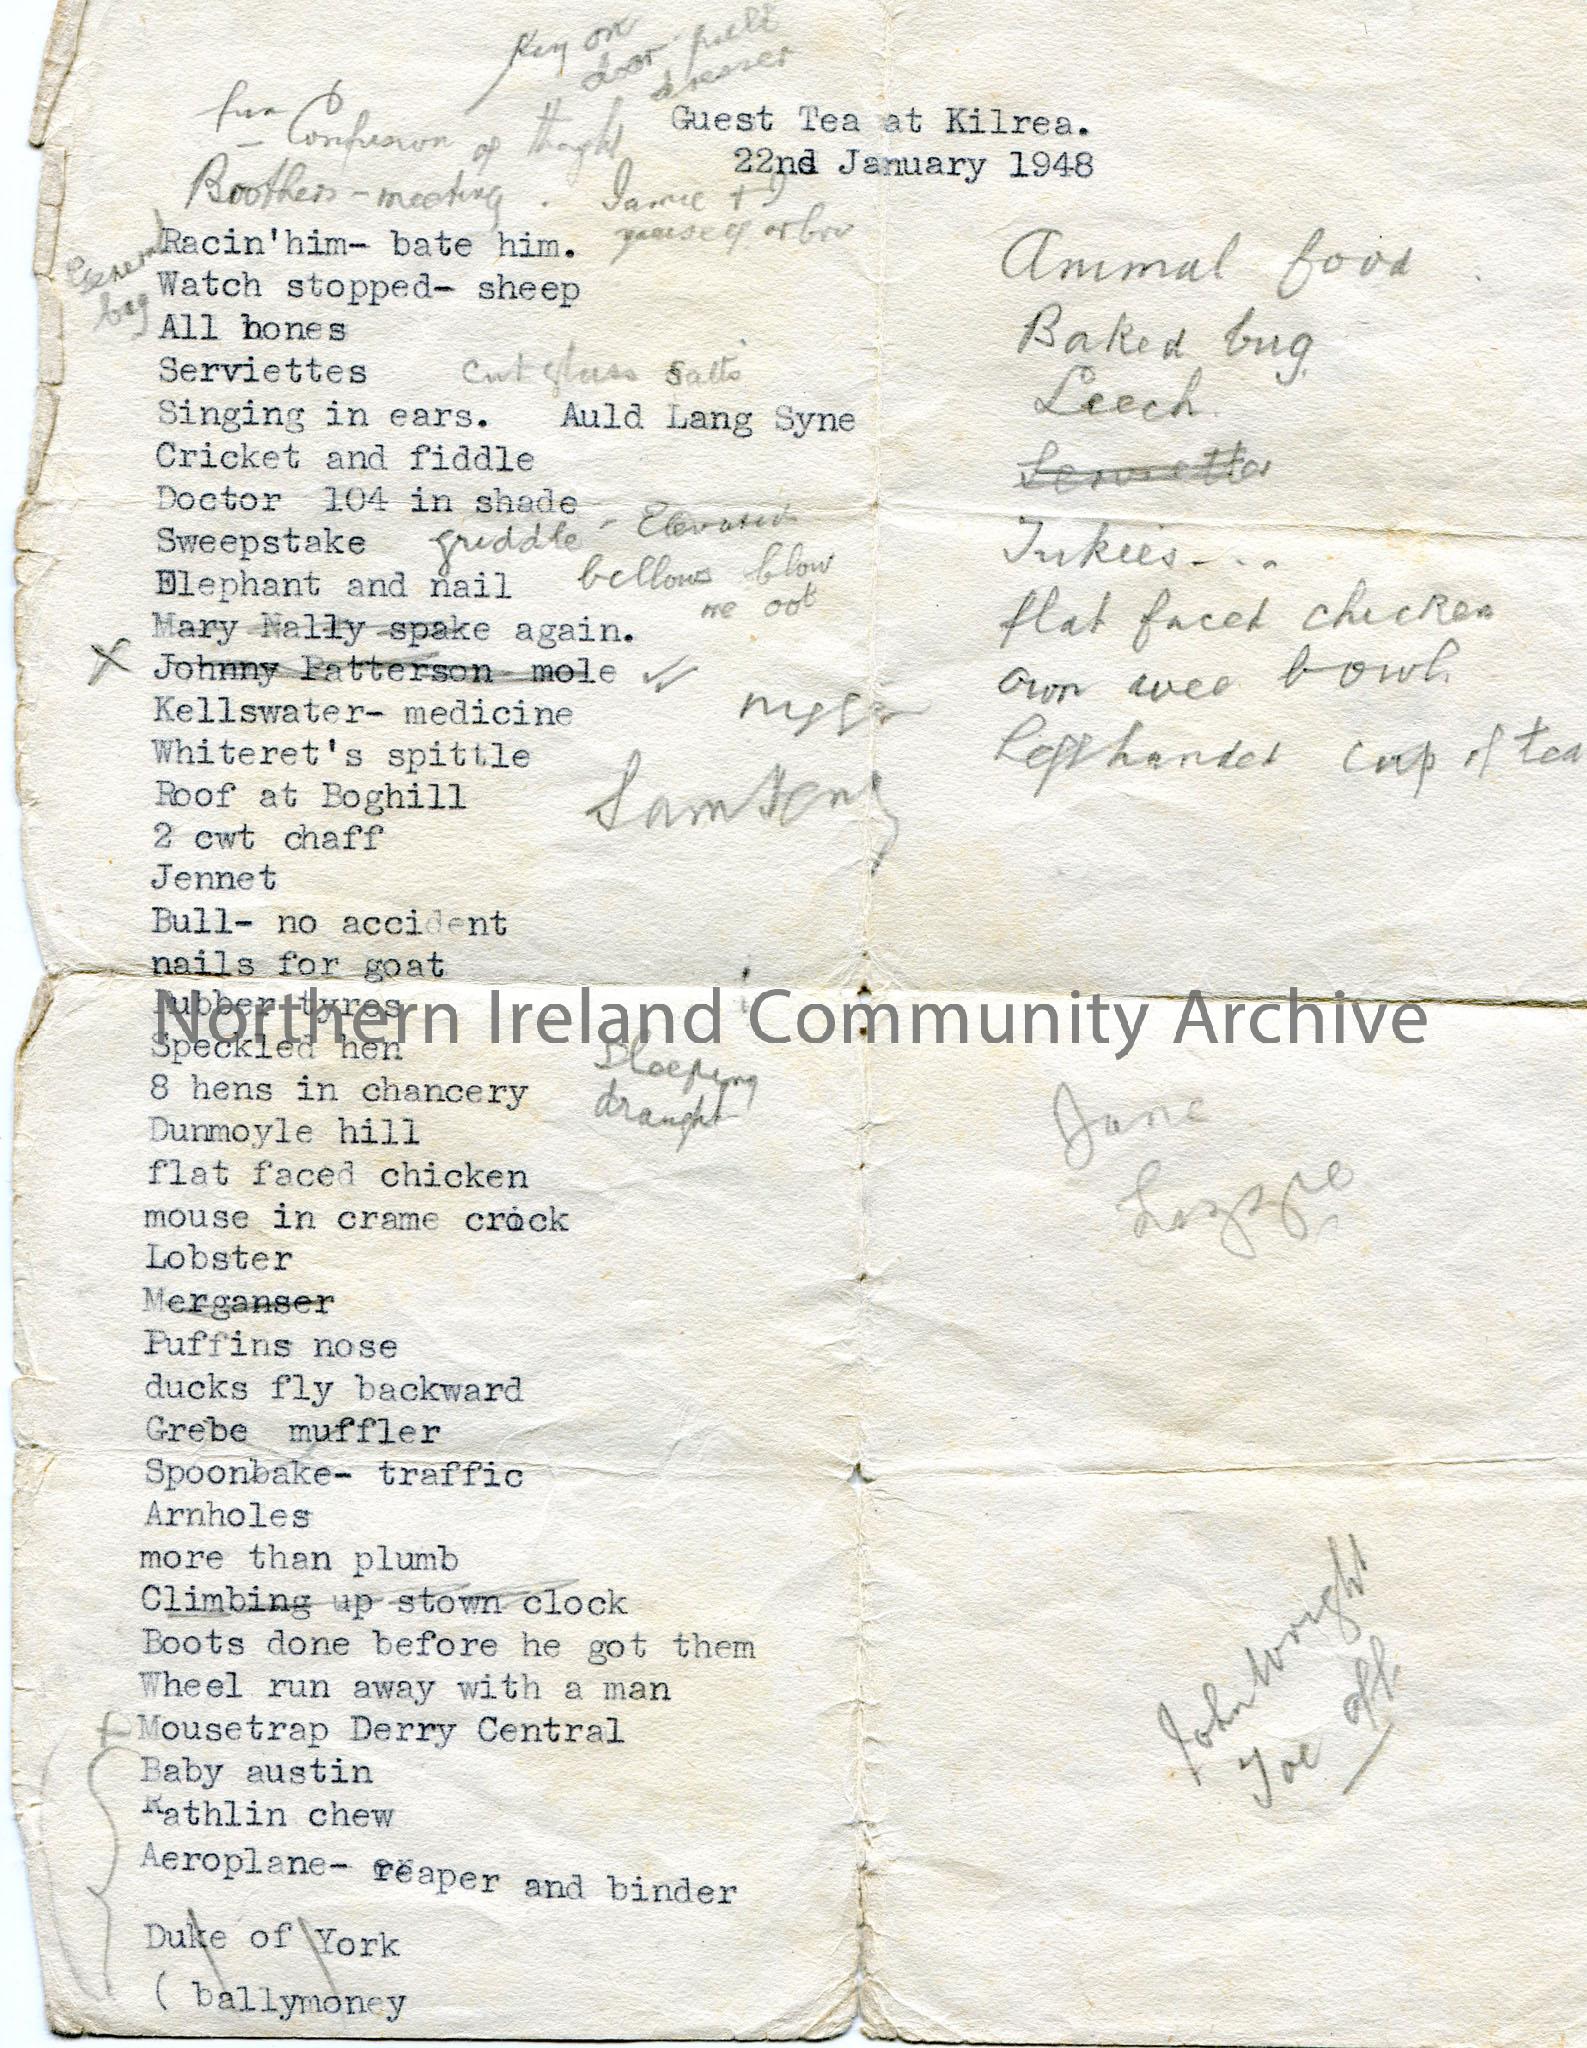 Key on
door
dresser
fun Confusion of thought
Guest Tea at Kilrea.
22nd January 1948
Boothers - meeting. Jamie + I
praise of
General
bag
Racin'him- bate him.
Watch stopped- sheep
All bones
Serviettes cut glass salts
Singing in ears. Auld Lang Syne
Cricket and fiddle
Doctor 104 in shade
Sweepstake griddle -
Elephant and nail bellows blow
me oot
Mary Nally spake again.
Johnny Patterson mole
Kellswater- medicine
Whiteret's spittle
Roof at Boghill
Sam Henry
2 cwt chaff
Jennet
Bull- no accident
nails for goat
Rubber tyres
Speckled hen
8 hens in chancery
Sleeping
draught
Dunmoyle hill
flat faced chicken
mouse in crame crock
Lobster
Merganser
Puffins nose
ducks fly backward
Grebe muffler
Spoonbake- traffic
Arnholes
more than plumb
Climbing up stown clock
Boots done before he got them
Wheel run away with a man
Mousetrap Derry Central
Baby austin
Rathlin chew
Aeroplane- reaper and binder
Duke of York
( ballymoney
Animal food
Baked bug
Leech
Serviettes
Tukies...
flat faced chicken
own wee bowl
Left handed cup of tea
Northern Ireland Community Archive
Jane
John Wright
Joe off